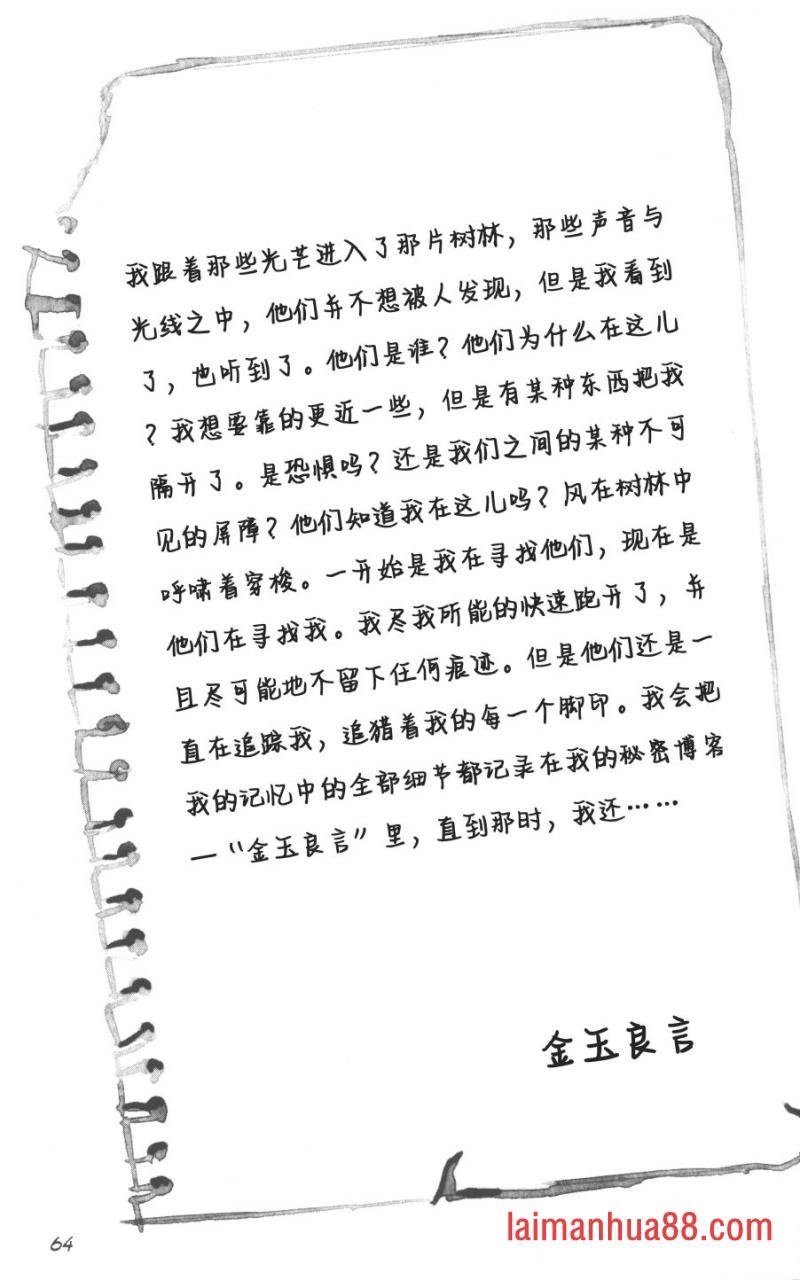 我跟着那些光芒进入了那片树林，那些声音与
光线之中，他们并不想被人发现，但是我看到
了，也听到了。他们是谁？他们为什么在这儿
？我想要靠的更近一些，但是有某种东西把我
隔开了。是恐惧吗？还是我们之间的某种不可
见的屏障？他们知道我在这儿吗？风在树林中
呼啸着穿梭。一开始是我在寻找他们，现在是
他们在寻找我。我尽我所能的快速跑开了，并
且尽可能地不留下任何痕迹。但是他们还是一
直在追踪我，追猎着我的每一个脚印。我会把
我的记忆中的全部细节都记录在我的秘密博客
—“金玉良言”里，直到那时，我还……
金玉良言
64
laimanhua88.com